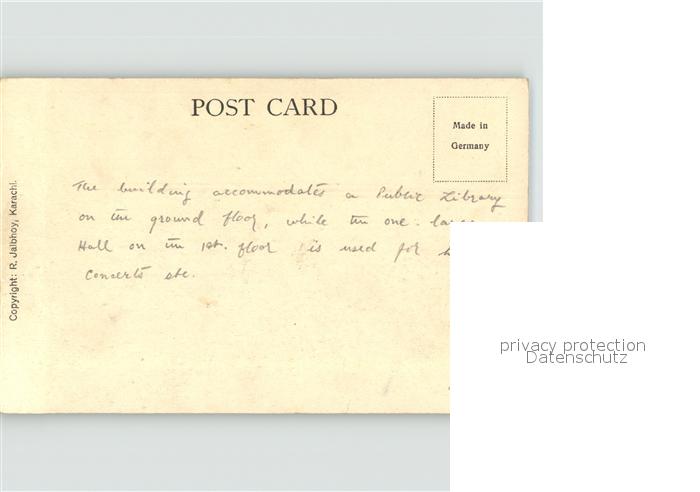 POST CARD
Made in
Germany
The building accommodates a Public Library
on the ground floor, while the one
Hall on the 1st. floor is used for
concerts etc.
Copyright: R. Jalbhoy, Karachi.
privacy protection
Datenschutz